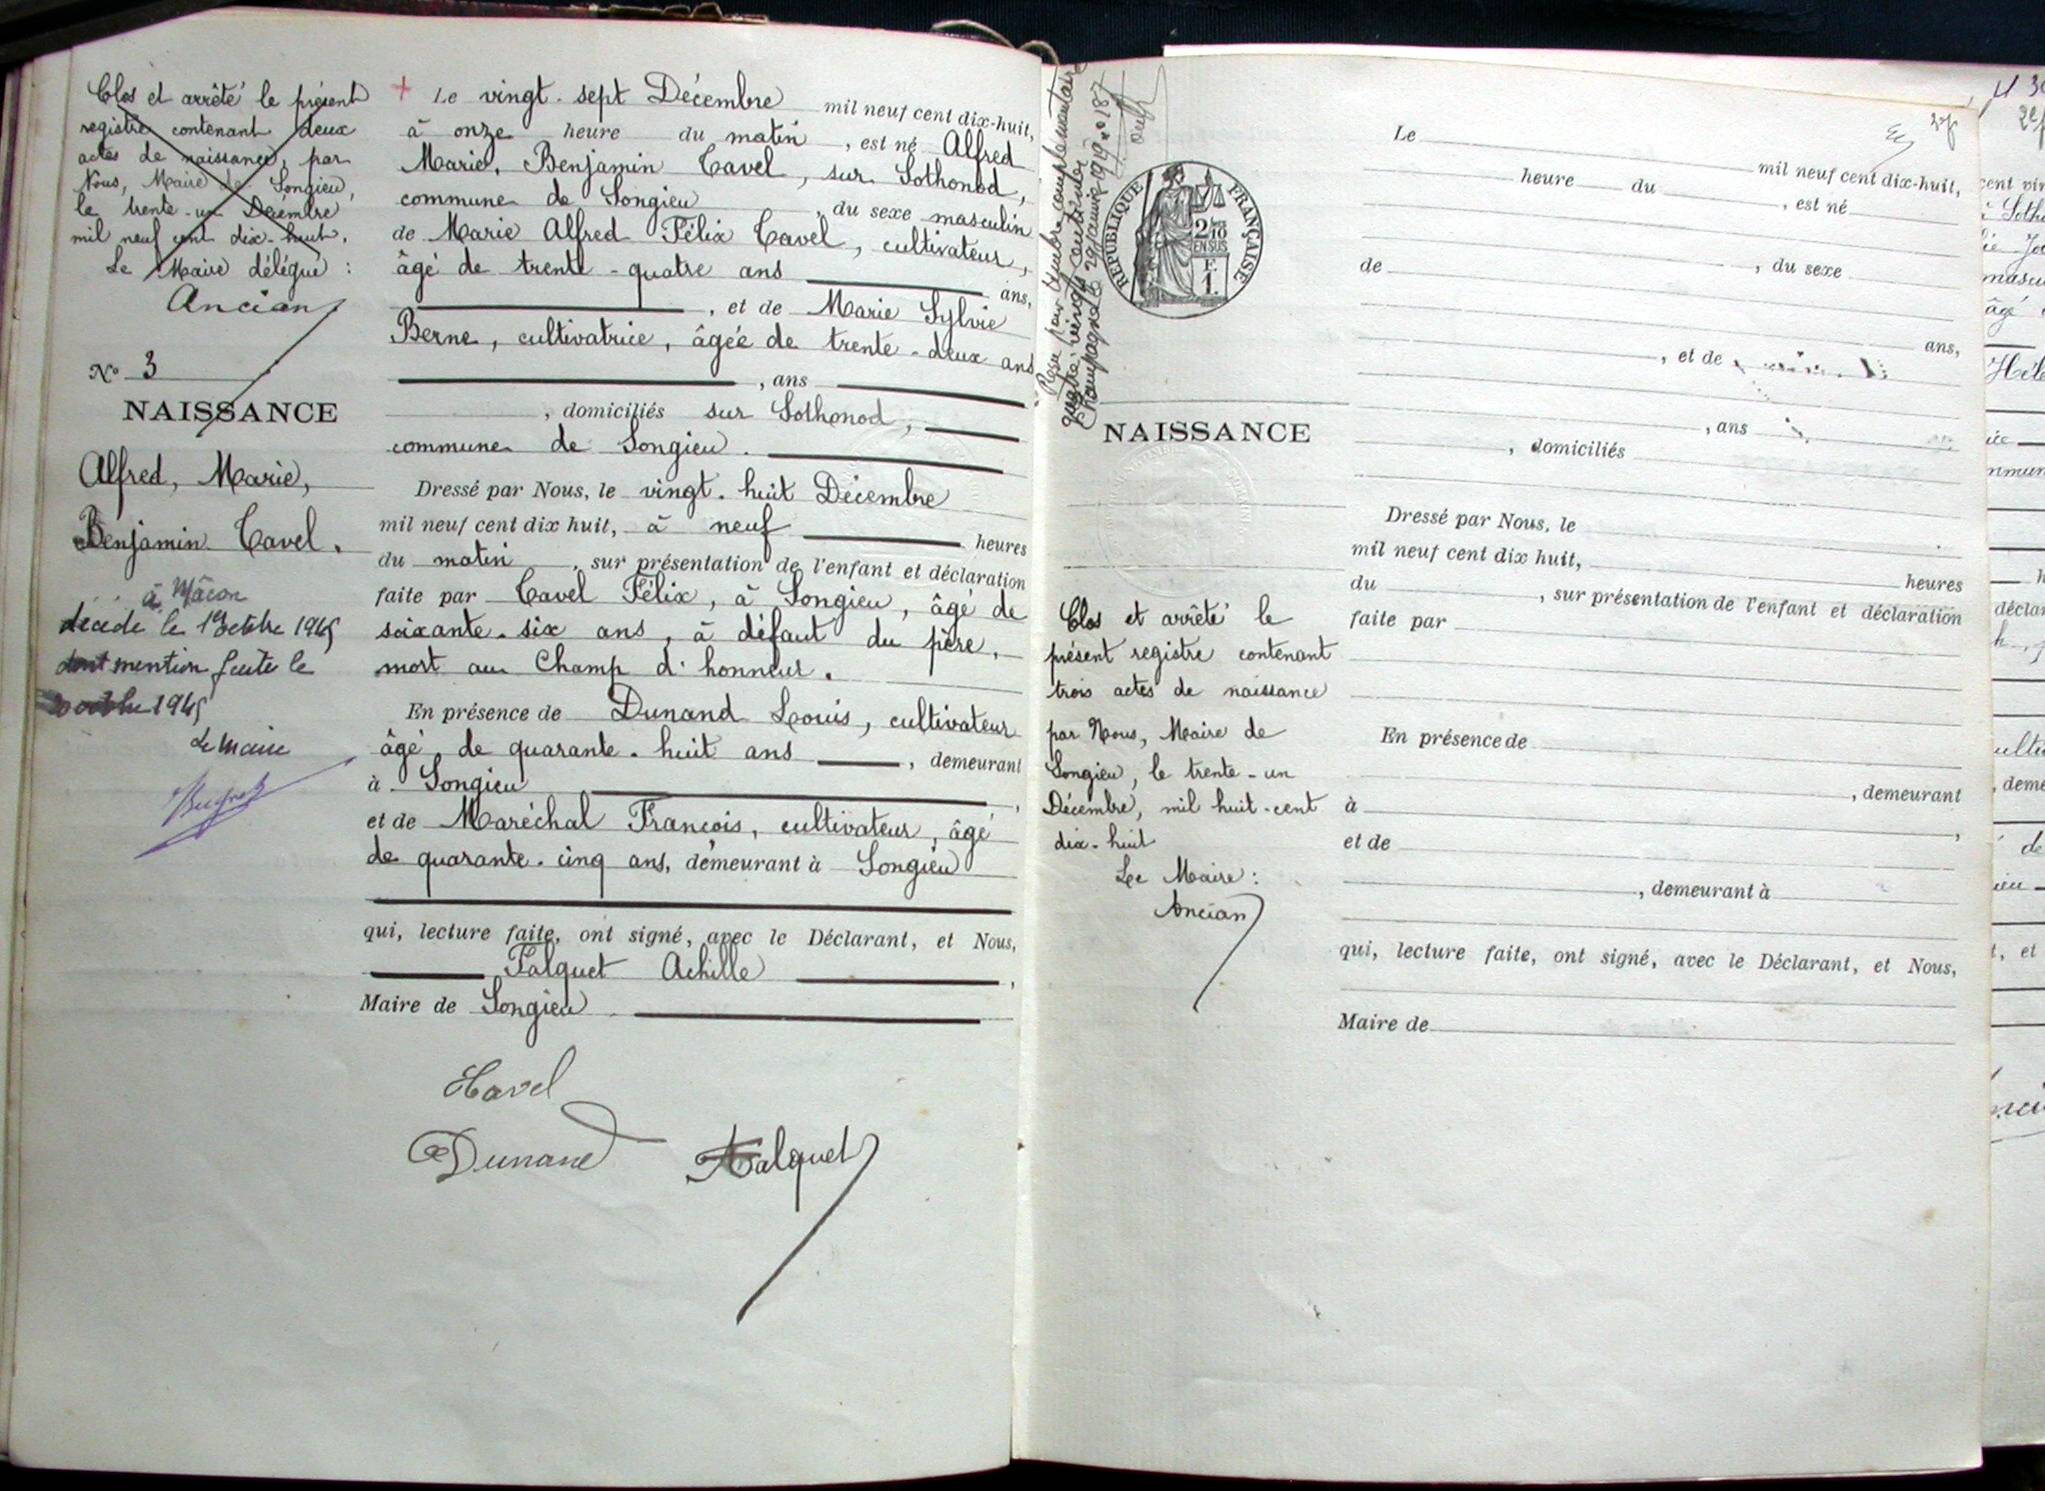 Clos et arrêté le présent
registre contenant deux
actes de naissance, par
Nous, Maire de Songieu,
le trente-un Décembre
mil neuf cent dix-huit.
Le Maire délégué :
Ancian
N° 3
NAISSANCE
Alfred, Marie,
Benjamin Cavel.
à Mâcon
décédé le 1er octobre 1945
dont mention faite le
octobre 1945
Le maire
+ Le vingt-sept Décembre mil neuf cent dix-huit,
à onze heure du matin, est né Alfred
Marie, Benjamin Cavel, sur Sothonod,
commune de Songieu, du sexe masculin
de Marie Alfred Félix Cavel, cultivateur,
âgé de trente-quatre ans ans,
, et de Marie Sylvie
Berne, cultivatrice, âgée de trente-deux ans
, ans
, domiciliés sur Sothonod,
commune de Songieu.
Dressé par Nous, le vingt-huit Décembre
mil neuf cent dix huit, à neuf heures
du matin, sur présentation de l'enfant et déclaration
faite par Cavel Félix, à Songieu, âgé de
soixante-six ans, à défaut du père,
mort au Champ d'honneur.
En présence de Dunand Louis, cultivateur
âgé de quarante-huit ans, demeurant
à Songieu,
et de Maréchal François, cultivateur, âgé
de quarante-cinq ans, demeurant à Songieu
qui, lecture faite, ont signé, avec le Déclarant, et Nous,
Falquet Achille,
Maire de Songieu
Cavel
Dunand
Falquet
Reçu pour timbre complémentaire
quatre vingts centimes
Champagne le 29 janvier 1919 n° 187
RÉPUBLIQUE FRANÇAISE
2/10
EN SUS
F.
1.
NAISSANCE
Clos et arrêté le
présent registre contenant
trois actes de naissance
par Nous, Maire de
Songieu, le trente-un
Décembre, mil huit-cent
dix-huit
Le Maire :
Ancian
Le mil neuf cent dix-huit,
heure du, est né
, du sexe
de
ans,
, et de
, ans
, domiciliés
Dressé par Nous, le
mil neuf cent dix huit,
heures
du, sur présentation de l'enfant et déclaration
faite par
En présence de
, demeurant
à,
et de
, demeurant à
qui, lecture faite, ont signé, avec le Déclarant, et Nous,
Maire de